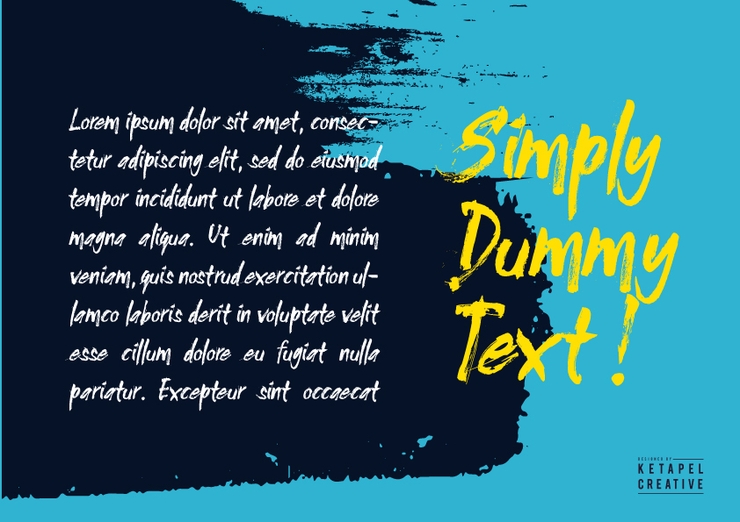 Lorem ipsum dolor sit amet, consec-
tetur adipiscing elit, sed do eiusmod
tempor incididunt ut labore et dolore
magna aliqua. Ut enim ad minim
veniam, quis nostrud exercitation ul-
lamco laboris derit in voluptate velit
esse cillum dolore eu fugiat nulla
pariatur. Excepteur sint occaecat
Simply
Dummy
Text !
DESIGNED BY
KETAPEL
CREATIVE